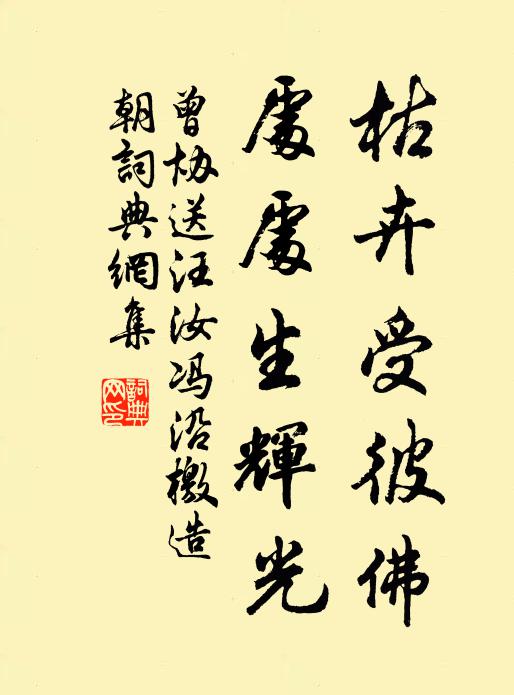 枯卉受彼佛
處處生輝光
曾協送汪汝馮沿檄造
朝詞典網集
詞典
网印